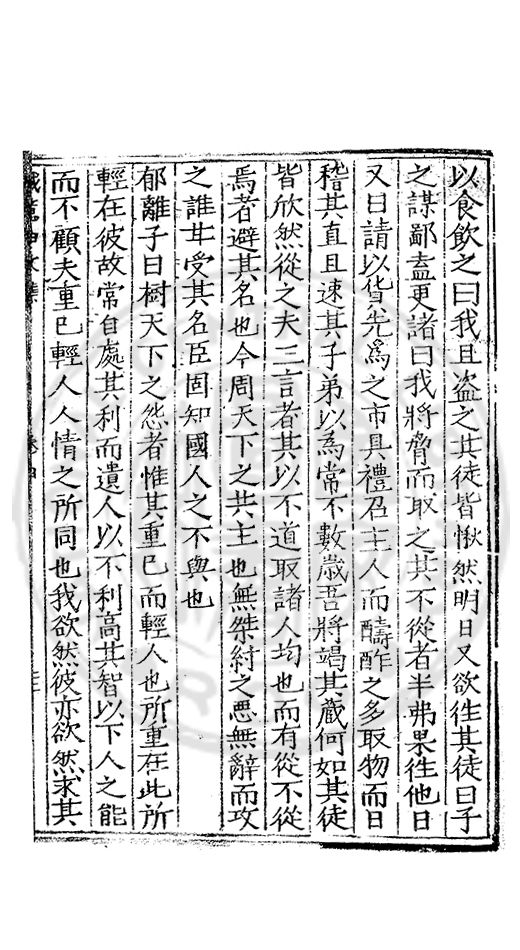 以食飲之曰我且盗之其徒皆愀然明日又欲徃其徒曰子
之謀鄙盍更諸曰我將脅而取之其不從者半弗果徃他日
又曰請以貨先爲之市具禮召主人而醻酢之多取物而日
稽其直且速其子弟以為常不數歲吾將竭其藏何如其徒
皆欣然從之夫三言者其以不道取諸人均也而有從不從
焉者避其名也今周天下之共主也無桀紂之悪無辭而攻
之誰其受其名臣固知國人之不與也
郁離子曰樹天下之怨者惟其重已而輕人也所重在此所
輕在彼故常自處其利而遺人以不利高其智以下人之能
而不顧夫重已輕人人情之所同也我欲然彼亦欲然求其